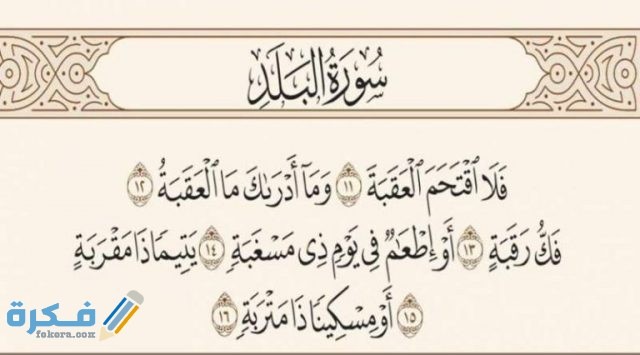 سُورَةُ البَلَدِ
فَلَا ٱقۡتَحَمَ ٱلۡعَقَبَةَ ١١ وَمَآ أَدۡرَىٰكَ مَا ٱلۡعَقَبَةُ ١٢
فَكُّ رَقَبَةٍ ١٣ أَوۡ إِطۡعَٰمٞ فِي يَوۡمٖ ذِي مَسۡغَبَةٖ ١٤ يَتِيمٗا ذَا مَقۡرَبَةٍ
١٥ أَوۡ مِسۡكِينٗا ذَا مَتۡرَبَةٖ ١٦
فكرة
fekera.com